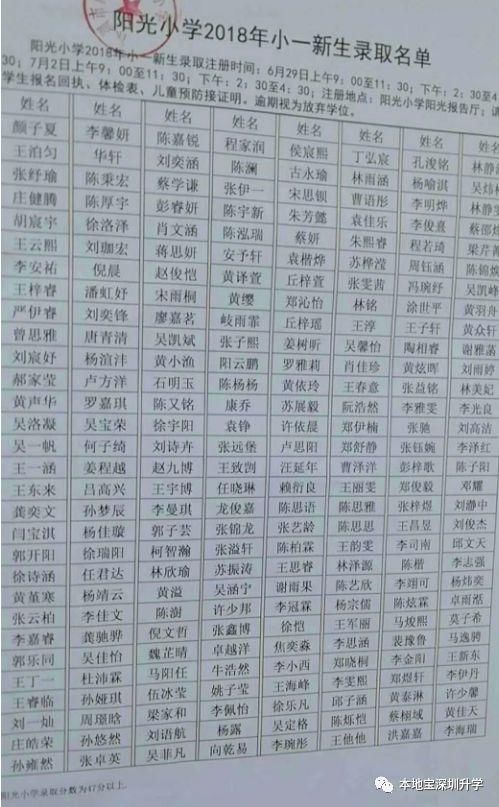 阳光小学2018年小一新生录取名单
阳光小学2018年小一新生录取注册时间：6月29日上午9：00至11：30；下午：2：30至4：
30；7月2日上午9：00至11：30；下午：2：30至4：30；注册地点：阳光小学阳光报告厅；请
学生报名回执、体检表、儿童预防接证明。逾期视为放弃学位。
姓名 姓名 姓名 姓名 姓名 姓名 姓名 姓名
颜子夏 李馨妍 陈嘉锐 程家润 侯宸熙 丁弘宸 孔浚铭 林静
王泊匀 华轩 刘奕涵 陈澜 古永瑜 林雨涵 杨喻淇 吴炜
张纾瑜 陈秉宏 蔡学谦 张伊一 宋思钡 曹语彤 李明烨 林静
庄健腾 陈厚宇 彭睿妍 陈宇新 朱芳懿 袁佳乐 李俊熹 蔡邵
胡宸宇 徐洛泽 肖文涵 陈泓瑞 蔡妍 朱熙睿 程若琦 梁芹
王云熙 刘珈宏 蒋思妍 安予轩 袁楷烨 苏桦滢 周钰涵 陈锦
李安祐 倪晨 赵俊恺 黄译萱 丘梓萱 张雯茜 冯琬纾 吴凯峰
王梓睿 潘虹妤 宋雨桐 黄缨 郑沁怡 林铭 涂世平 黄羽舟
严伊睿 刘奕锋 廖嘉茗 岐雨霏 丘梓瑶 王淳 王子轩 黄众轩
曾思雅 唐青清 吴凯斌 张子熙 姜树昕 吴馨怡 陶相睿 谢雅菡
刘宸妤 杨渲沣 黄小渔 阳云鹏 罗雅莉 肖佳珍 黄炫晖 刘雨婷
郝家莹 卢方洋 石明玉 陈杨杨 黄依玲 王春意 张益铭 林美妃
黄声华 罗嘉琪 陈又铭 康乔 苏展毅 阮浩然 李雅雯 李光良
吴洛凝 吴宝荣 徐宇阳 袁铮 许依晨 郑伊楠 张驰 刘高洁
吴一帆 何子绮 刘诗卉 张远堡 卢思阳 郑舒静 张钰婉 李泽红
王一涵 姜程越 赵九博 王致凯 汪延年 曹泽洋 彭梓歌 陈子阳
王东来 吕高兴 王宇博 任晓琳 赖衍良 王丽雯 郑俊毅 邓耀
龚奕文 孙梦辰 李曼琪 龙俊嘉 陈思语 陈思雅 张梓煜 刘瀞中
闫宝淇 杨佳璇 郭子芸 张锦龙 张艺龄 陈思思 王昌昱 刘俊杰
郭开阳 徐瑞阳 柯智瀚 张溢轩 陈柏霖 王韵雯 李司南 邱文天
徐诗涵 任君达 林欣瑜 苏振涛 王思睿 林泽源 陈楷 李志强
黄堇寒 杨靖云 黄溢 吴涵宁 谢雨果 陈艺欣 李翊可 杨炜奕
张云柏 李佳文 陈澍 许少邦 李冠霖 杨宗儒 陈炫霖 卓雨泓
李嘉睿 龚驰骅 倪文哲 张鑫博 徐恺 王军丽 马焌熙 莫子希
郭乐同 吴佳怡 魏芷晴 卓越洋 焦奕淼 李思涵 裴豫鲁 马逸骋
王丁一 杜沛霖 马阳任 牛浩然 李小西 郑晓桐 李金阳 王新东
王睿临 孙娅琪 伍冰莹 姚子莹 王海峰 李雯熙 郑煜轩 李伊丹
刘一灿 周璟晗 梁家和 李佩怡 徐乐凡 邱子涵 黄泰淋 许少馨
庄皓荣 孙悠然 刘语航 杨露 吴定格 陈烁恺 蔡栩域 黄佳天
孙雍然 张卓英 吴菲凡 向乾易 李琬彤 王他他 洪嘉嘉 李海瑞
阳光小学录取分数为47分以上.
本地宝深圳升学